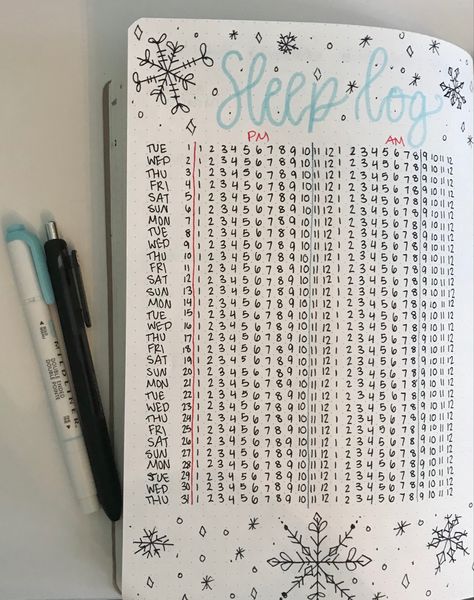 Sleep log
PM AM
TUE 1 1 2 3 4 5 6 7 8 9 10 11 12 1 2 3 4 5 6 7 8 9 10 11 12
WED 2 1 2 3 4 5 6 7 8 9 10 11 12 1 2 3 4 5 6 7 8 9 10 11 12
THU 3 1 2 3 4 5 6 7 8 9 10 11 12 1 2 3 4 5 6 7 8 9 10 11 12
FRI 4 1 2 3 4 5 6 7 8 9 10 11 12 1 2 3 4 5 6 7 8 9 10 11 12
SAT 5 1 2 3 4 5 6 7 8 9 10 11 12 1 2 3 4 5 6 7 8 9 10 11 12
SUN 6 1 2 3 4 5 6 7 8 9 10 11 12 1 2 3 4 5 6 7 8 9 10 11 12
MON 7 1 2 3 4 5 6 7 8 9 10 11 12 1 2 3 4 5 6 7 8 9 10 11 12
TUE 8 1 2 3 4 5 6 7 8 9 10 11 12 1 2 3 4 5 6 7 8 9 10 11 12
WED 9 1 2 3 4 5 6 7 8 9 10 11 12 1 2 3 4 5 6 7 8 9 10 11 12
THU 10 1 2 3 4 5 6 7 8 9 10 11 12 1 2 3 4 5 6 7 8 9 10 11 12
FRI 11 1 2 3 4 5 6 7 8 9 10 11 12 1 2 3 4 5 6 7 8 9 10 11 12
SAT 12 1 2 3 4 5 6 7 8 9 10 11 12 1 2 3 4 5 6 7 8 9 10 11 12
SUN 13 1 2 3 4 5 6 7 8 9 10 11 12 1 2 3 4 5 6 7 8 9 10 11 12
MON 14 1 2 3 4 5 6 7 8 9 10 11 12 1 2 3 4 5 6 7 8 9 10 11 12
TUE 15 1 2 3 4 5 6 7 8 9 10 11 12 1 2 3 4 5 6 7 8 9 10 11 12
WED 16 1 2 3 4 5 6 7 8 9 10 11 12 1 2 3 4 5 6 7 8 9 10 11 12
THU 17 1 2 3 4 5 6 7 8 9 10 11 12 1 2 3 4 5 6 7 8 9 10 11 12
FRI 18 1 2 3 4 5 6 7 8 9 10 11 12 1 2 3 4 5 6 7 8 9 10 11 12
SAT 19 1 2 3 4 5 6 7 8 9 10 11 12 1 2 3 4 5 6 7 8 9 10 11 12
SUN 20 1 2 3 4 5 6 7 8 9 10 11 12 1 2 3 4 5 6 7 8 9 10 11 12
MON 21 1 2 3 4 5 6 7 8 9 10 11 12 1 2 3 4 5 6 7 8 9 10 11 12
TUE 22 1 2 3 4 5 6 7 8 9 10 11 12 1 2 3 4 5 6 7 8 9 10 11 12
WED 23 1 2 3 4 5 6 7 8 9 10 11 12 1 2 3 4 5 6 7 8 9 10 11 12
THU 24 1 2 3 4 5 6 7 8 9 10 11 12 1 2 3 4 5 6 7 8 9 10 11 12
FRI 25 1 2 3 4 5 6 7 8 9 10 11 12 1 2 3 4 5 6 7 8 9 10 11 12
SAT 26 1 2 3 4 5 6 7 8 9 10 11 12 1 2 3 4 5 6 7 8 9 10 11 12
SUN 27 1 2 3 4 5 6 7 8 9 10 11 12 1 2 3 4 5 6 7 8 9 10 11 12
MON 28 1 2 3 4 5 6 7 8 9 10 11 12 1 2 3 4 5 6 7 8 9 10 11 12
TUE 29 1 2 3 4 5 6 7 8 9 10 11 12 1 2 3 4 5 6 7 8 9 10 11 12
WED 30 1 2 3 4 5 6 7 8 9 10 11 12 1 2 3 4 5 6 7 8 9 10 11 12
THU 31 1 2 3 4 5 6 7 8 9 10 11 12 1 2 3 4 5 6 7 8 9 10 11 12
MILDLINER
DOUBLE ENDED